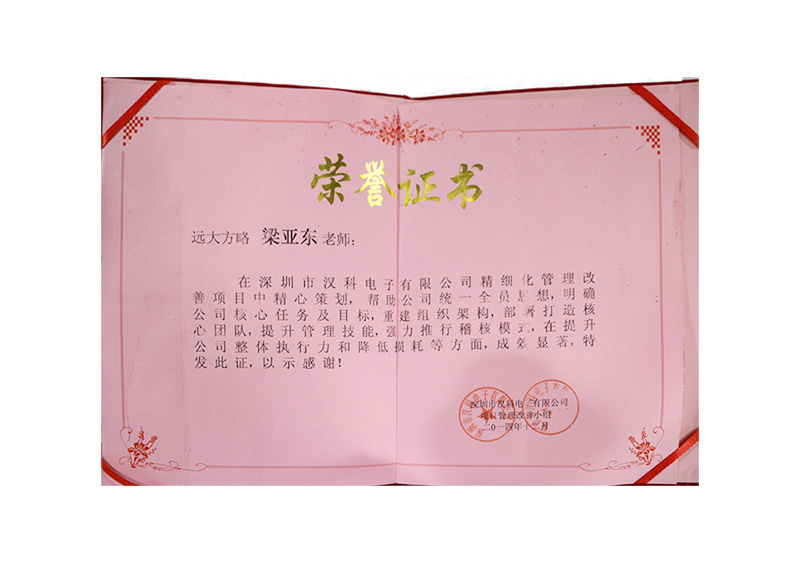 荣誉证书
远大方略 梁亚东老师：
在深圳市汉科电子有限公司精细化管理改
善项目中精心策划，帮助公司统一全员思想，明确
公司核心任务及目标，重建组织架构，部署打造核
心团队，提升管理技能，强力推行稽核模式，在提升
公司整体执行力和降低损耗等方面，成效显著，特
发此证，以示感谢！
深圳市汉科电子有限公司
管理改善小组
二〇一四年十月